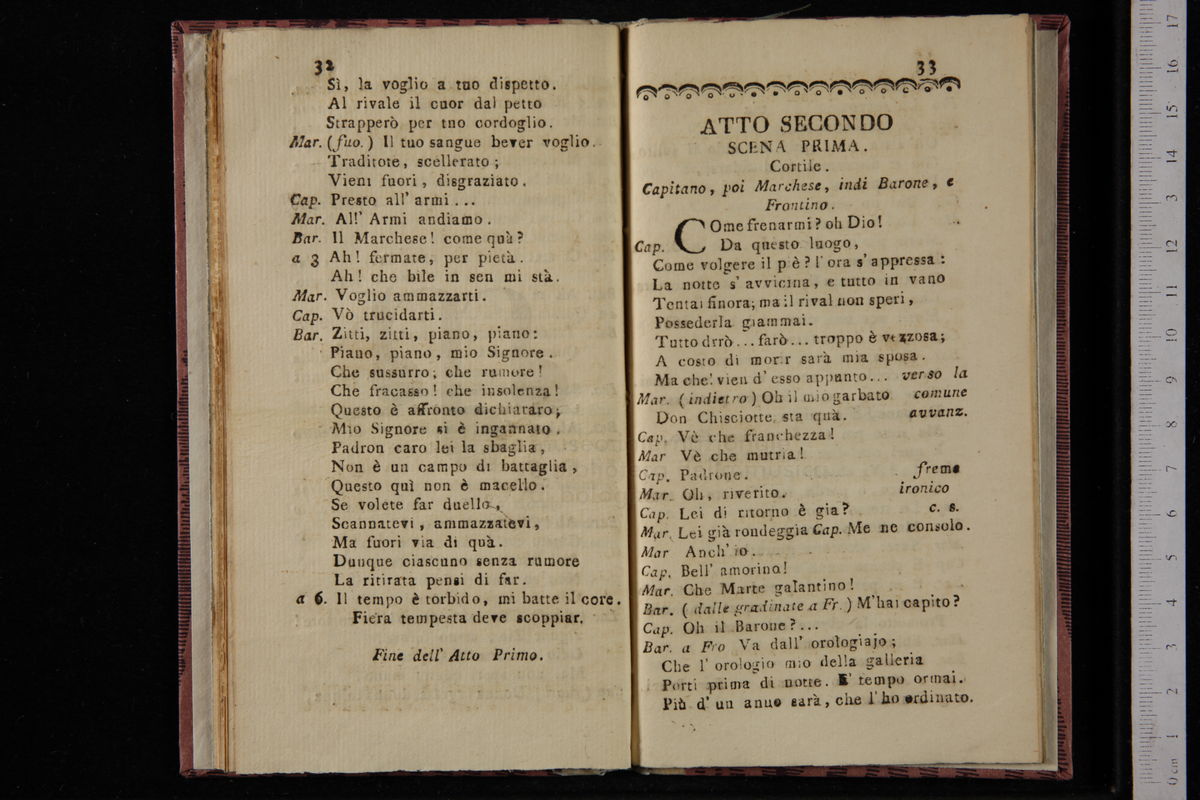 32
Sì, la voglio a tuo dispetto.
Al rivale il cuor dal petto
Strapperò per tno cordoglio.
Mar. (fuo.) Il tuo sangue bever voglio.
Traditote, scellerato;
Vieni fuori, disgraziato.
Cap. Presto all' armi...
Mar. All' Armi andiamo.
Bar. Il Marchese! come quà?
a 3 Ah! fermate, per pietà.
Ah! che bile in sen mi stà.
Mar. Voglio ammazzarti.
Cap. Vò trucidarti.
Bar. Zitti, zitti, piano, piano:
Piano, piano, mio Signore.
Che sussurro; che rumore!
Che fracasso! che insolenza!
Questo è affronto dichiararo;
Mio Signore si è ingannato.
Padron caro lei la sbaglia,
Non è un campo di battaglia,
Questo quì non è macello.
Se volete far duello,
Scannatevi, ammazzatevi,
Ma fuori via di quà.
Dunque ciascuno senza rumore
La ritirata pensi di far.
a 6. Il tempo è torbido, mi batte il core.
Fiera tempesta deve scoppiar.
Fine dell' Atto Primo.
33
ATTO SECONDO
SCENA PRIMA.
Cortile.
Capitano, poi Marchese, indi Barone, e
Frontino.
Cap. COme frenarmi? oh Dio!
Da questo luogo,
Come volgere il piè? l' ora s' appressa:
La notte s' avvicina, e tutto in vano
Tentai finora; ma il rival non speri,
Possederla giammai.
Tutto dirò... farò... troppo è vezzosa;
A costo di morir sarà mia sposa.
Ma che! vien d' esso appunto... verso la
Mar. (indietro) Oh il mio garbato comune
Don Chisciotte sta quà. avvanz.
Cap. Vè che franchezza!
Mar Vè che mutria!
Cap. Padrone. freme
Mar. Oh, riverito. ironico
Cap. Lei di ritorno è gia? c. s.
Mar. Lei già rondeggia Cap. Me ne consolo.
Mar Anch' io.
Cap. Bell' amorino!
Mar. Che Marte galantino!
Bar. (dalle gradinate a Fr.) M'hai capito?
Cap. Oh il Barone?...
Bar. a Fro Va dall' orologiajo;
Che l' orologio mio della galleria
Porti prima di notte. E' tempo ormai.
Più d' un anno sarà, che l' ho ordinato.
0 cm 1 2 3 4 5 6 7 8 9 10 11 12 13 14 15 16 17